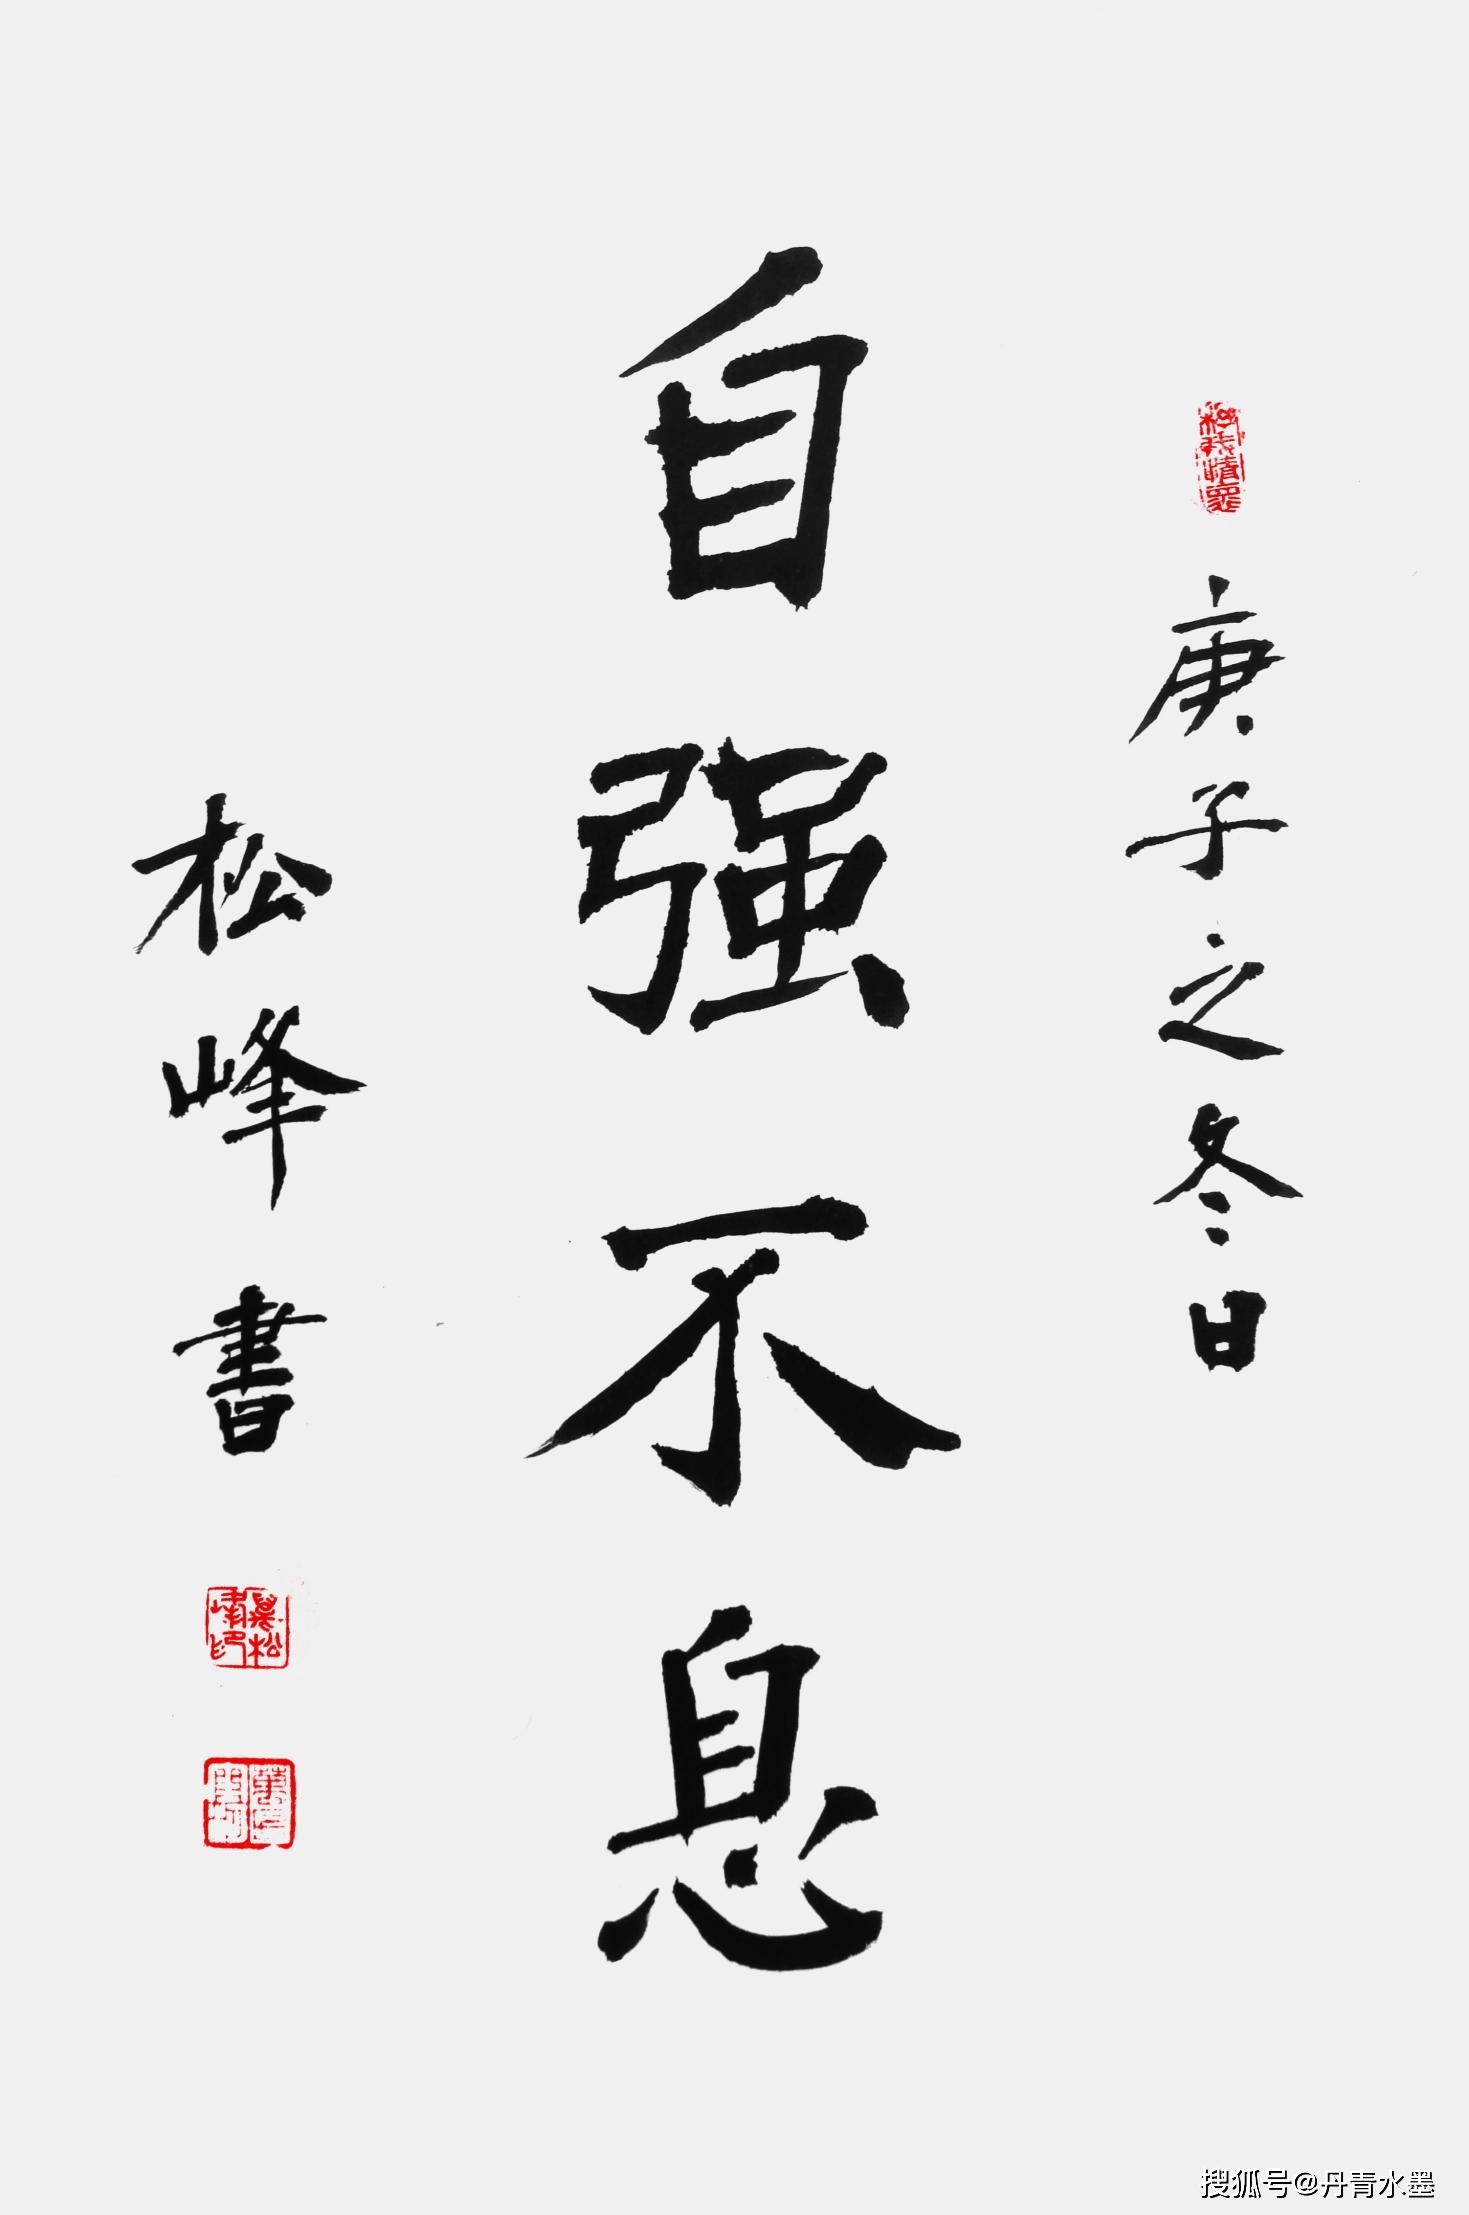 庚子之冬日
自强不息
松峰書
搜狐号@丹青水墨